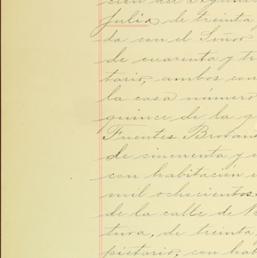 Julia, de treinta
da con el Señor
de cuarenta y tr
tario, ambos con
la casa número
quince de la q
Fuentes Brotan
de cincuenta y
con habitación
mil ochocientos
de la calle de
tura, de treinta
pietario, con hab